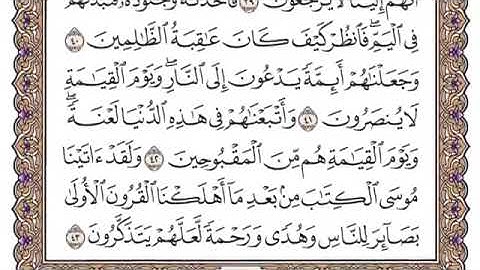 أَنَّهُمْ إِلَيْنَا لَا يُرْجَعُونَ ٣٩ فَأَخَذْنَٰهُ وَجُنُودَهُۥ فَنَبَذْنَٰهُمْ
فِى ٱلْيَمِّ ۖ فَٱنظُرْ كَيْفَ كَانَ عَٰقِبَةُ ٱلظَّٰلِمِينَ ٤٠
وَجَعَلْنَٰهُمْ أَئِمَّةً يَدْعُونَ إِلَى ٱلنَّارِ ۖ وَيَوْمَ ٱلْقِيَٰمَةِ
لَا يُنصَرُونَ ٤١ وَأَتْبَعْنَٰهُمْ فِى هَٰذِهِ ٱلدُّنْيَا لَعْنَةً ۖ
وَيَوْمَ ٱلْقِيَٰمَةِ هُم مِّنَ ٱلْمَقْبُوحِينَ ٤٢ وَلَقَدْ ءَاتَيْنَا
مُوسَى ٱلْكِتَٰبَ مِنۢ بَعْدِ مَآ أَهْلَكْنَا ٱلْقُرُونَ ٱلْأُولَىٰ
بَصَآئِرَ لِلنَّاسِ وَهُدًى وَرَحْمَةً لَّعَلَّهُمْ يَتَذَكَّرُونَ ٤٣